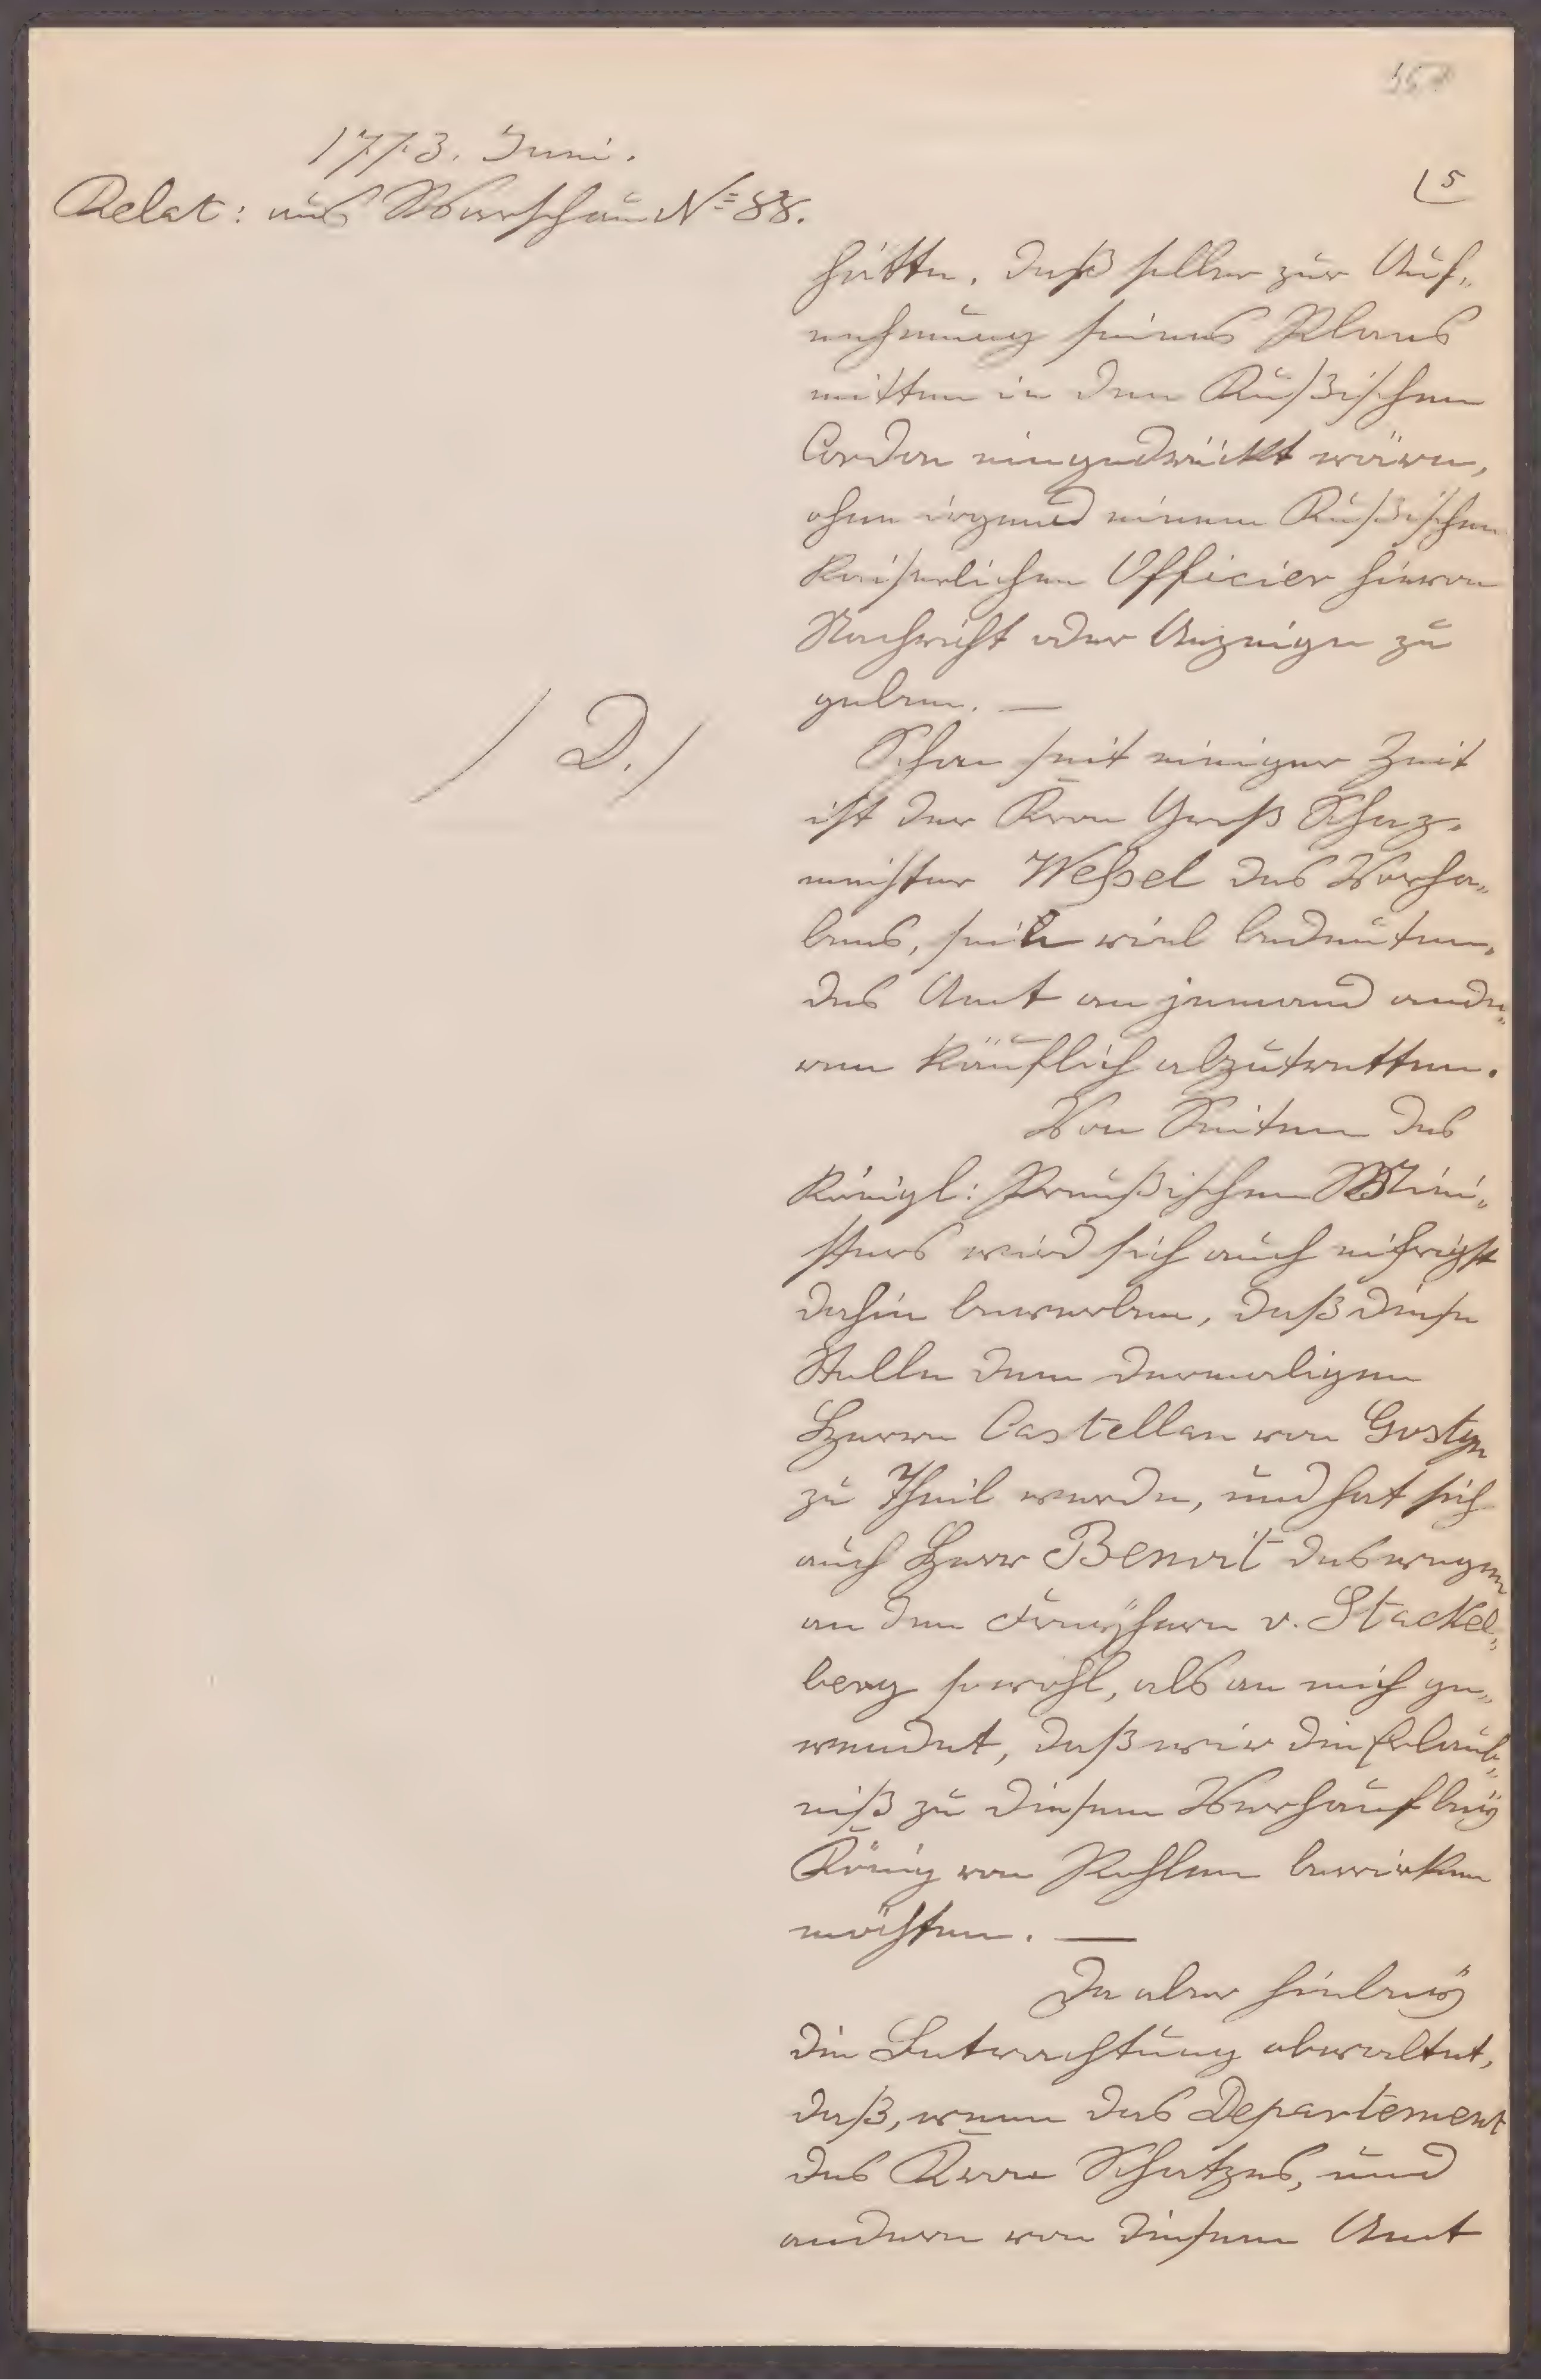 1773. Juni.
Relat: aus Warschau No 88.
5
hätte, daß selber zur Auf„
nehmung seines Plans
mitten in den Rußischen
Cordon eingedrückt wären,
ohne irgend einem Rußischen
Kaiserlichen Officier hievon
Nachricht oder Anzeige zu
geben. —
/ D. /
Schon seit einiger Zeit
ist der Kron Groß Schaz„
meister Weßel des Vorha„
bens, sein viel bedeuten„
des Amt an jemand ande„
ren käuflich abzutretten.
Von Seiten des
Königl: Preußischen Mini„
sters wird sich auch eifrigst
dahin beworben, daß diese
Stelle dem dermaligen
Herrn Castellan von Gostyn
zu Theil werde, und hat sich
auch Herr Benoit deswegen
an den Freyherrn v. Stackel„
berg sowohl, als an mich ge„
wendet, daß wir die Erlaub„
niß zu diesem Verkauf bey
König von Pohlen bewirken
möchten. —
Da aber hiebey
die Betrachtung obwaltet,
daß, wenn das Departement
des Kron Schatzes, und
andere von diesem Amt